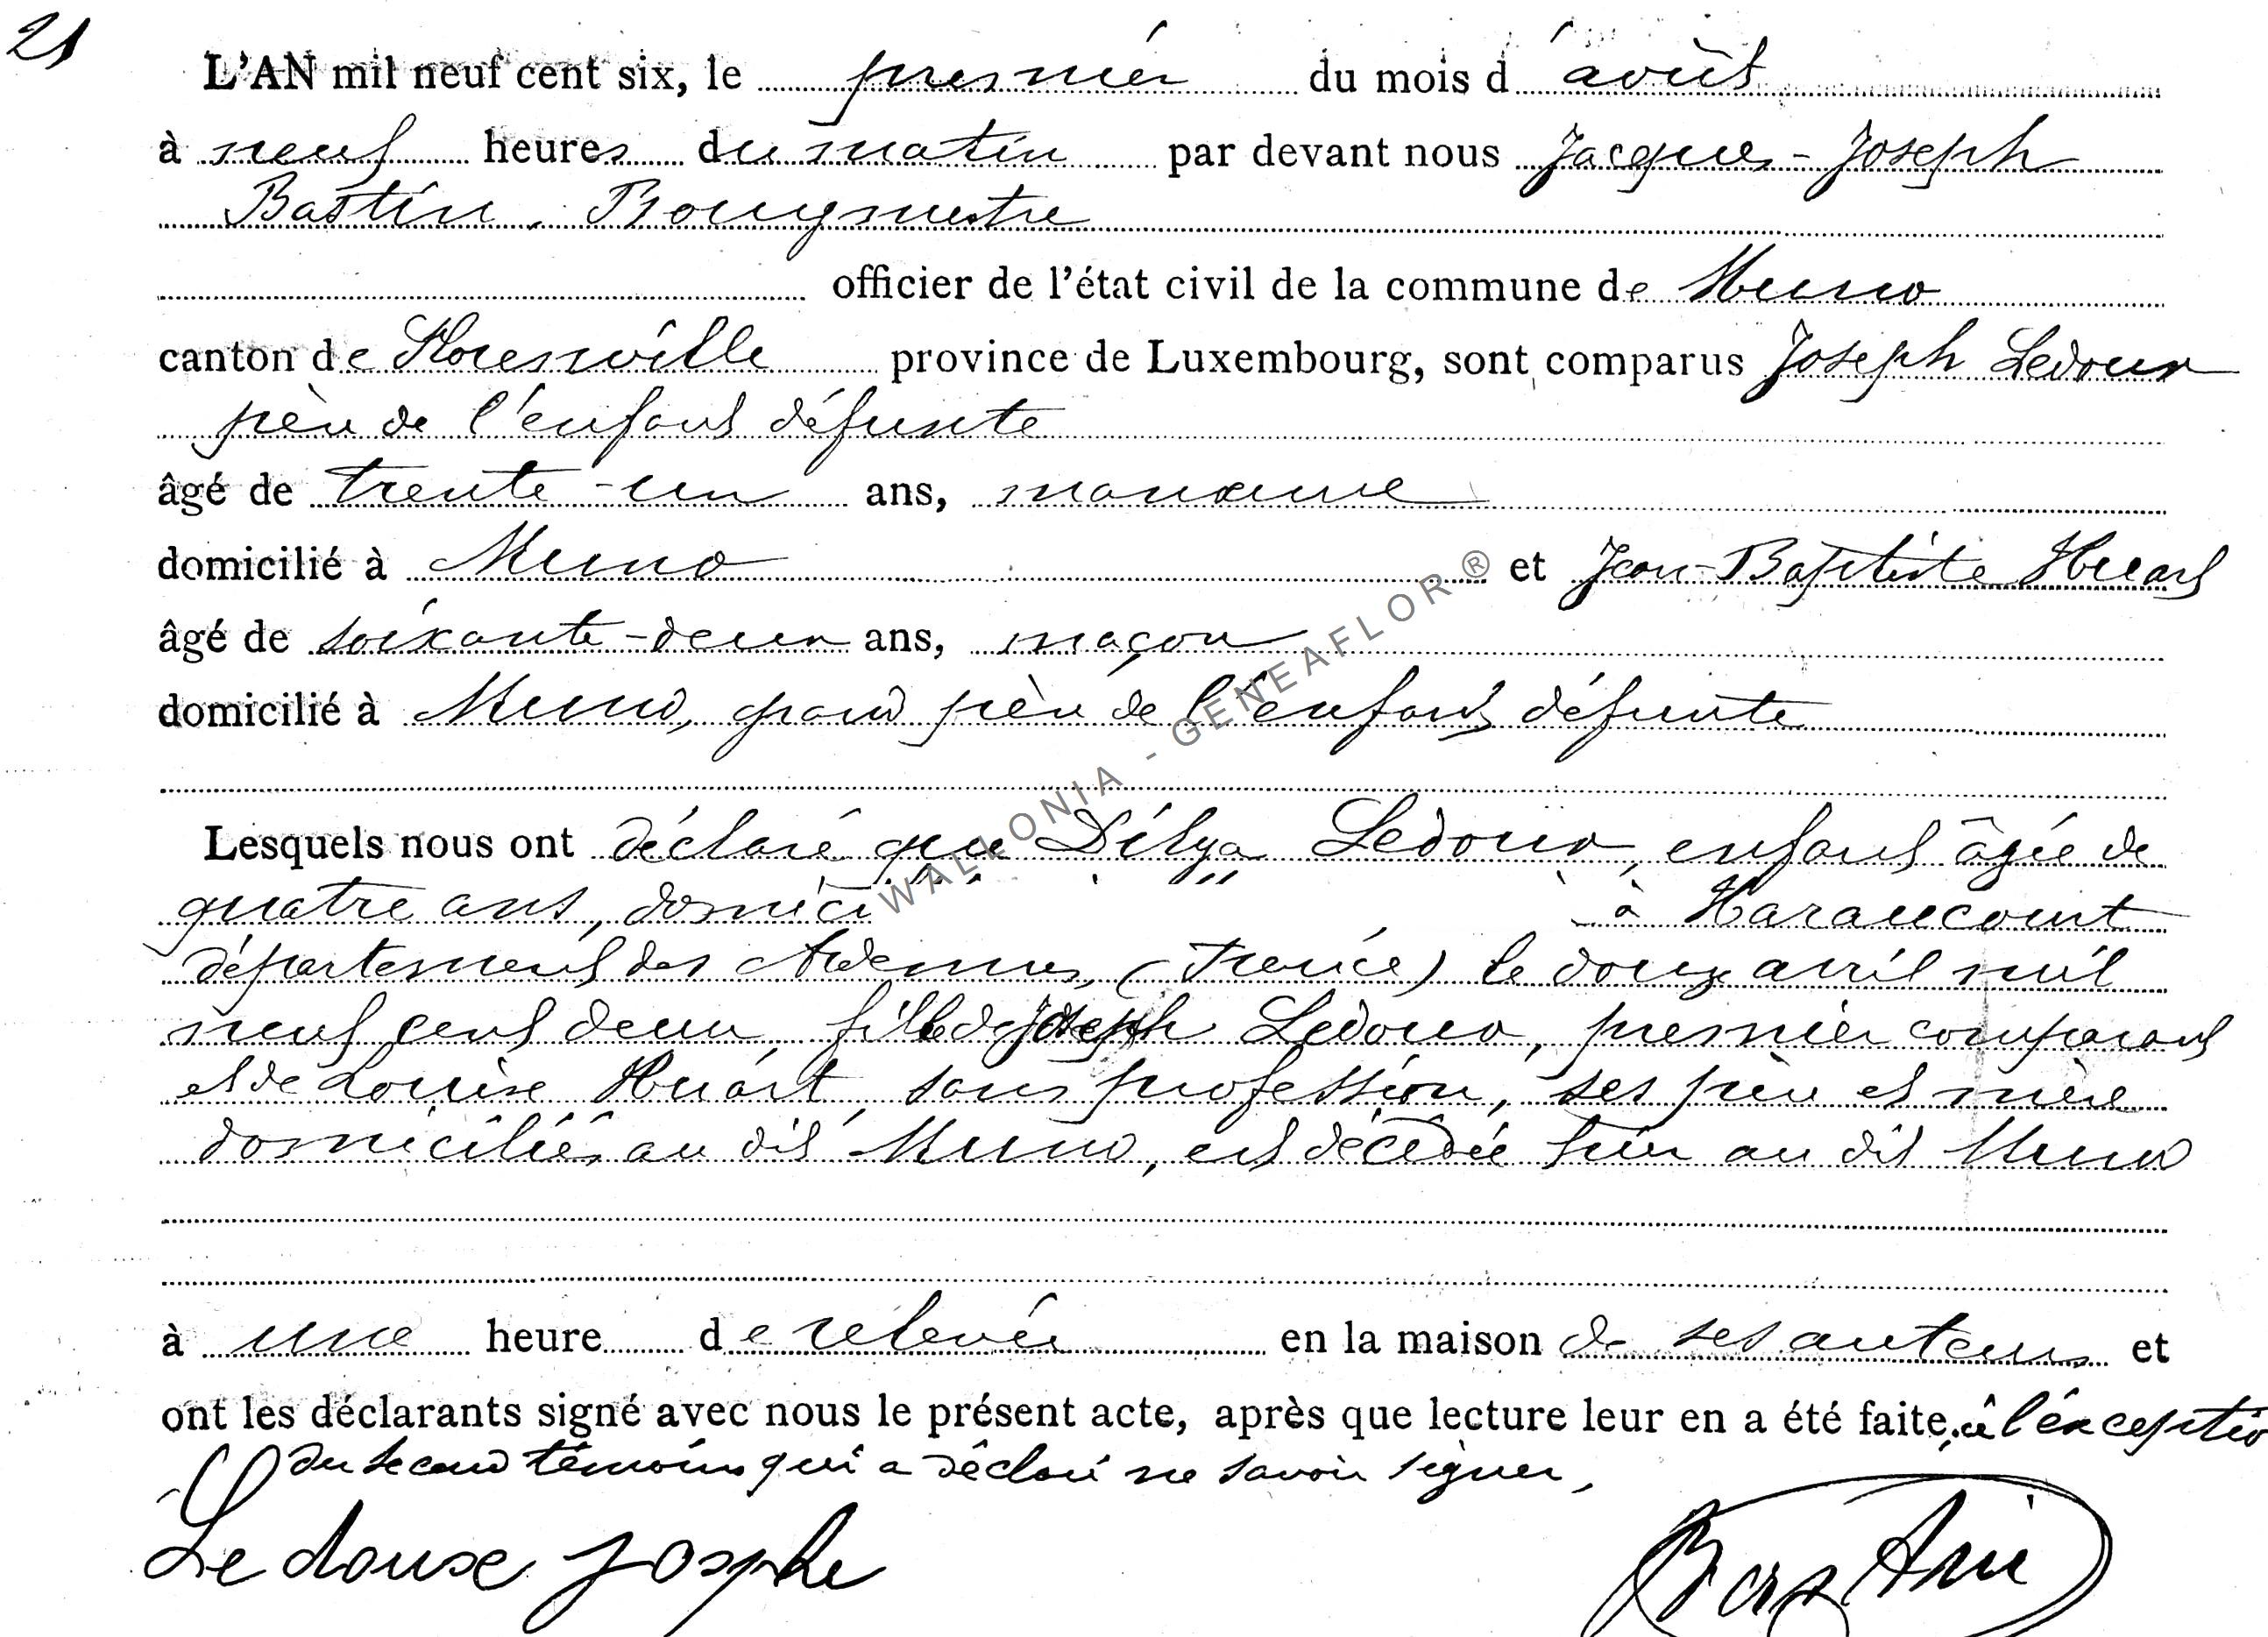 21
L'AN mil neuf cent six, le premier du mois d'août
à neuf heures du matin par devant nous Jacques-Joseph
Bastin, Bourgmestre
officier de l'état civil de la commune de Muno
canton de Florenville province de Luxembourg, sont comparus Joseph Ledoux
père de l'enfant défunte
âgé de trente-un ans, manœuvre
domicilié à Muno et Jean-Baptiste Huart
âgé de soixante-deux ans, maçon
domicilié à Muno, grand père de l'enfant défunte
WALLONIA - GENEAFLOR ®
Lesquels nous ont déclaré que Ledoux, enfant âgée de
quatre ans, domici à Haraucourt
département des Ardennes, (France) le douze avril mil
neuf cent deux, fille de Joseph Ledoux, premier comparant
et de Louise Huart, sans profession, ses père et mère
domiciliés au dit Muno, est décédée hier au dit Muno
à une heure de relevée en la maison de ses auteurs et
ont les déclarants signé avec nous le présent acte, après que lecture leur en a été faite, à l'exceptio
du second témoins qui a déclaré ne savoir signer,
Ledouxe Josphe
Bastin